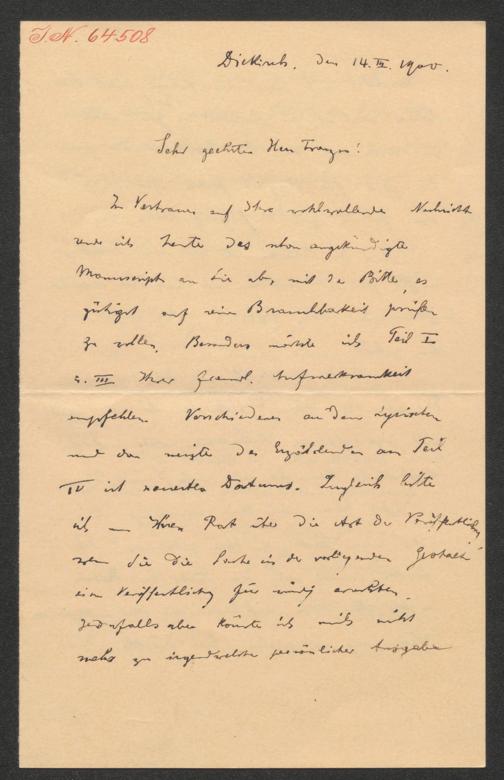 J.N. 64508
Diekirch, den 14. IX. 1900.
Sehr geehrter Herr Franzos!
Im Vertrauen auf Ihre wohlwollende Nachricht
sende ich heute das schon angekündigte
Manuscript an Sie ab, mit der Bitte, es
gütigst auf seine Brauchbarkeit prüfen
zu wollen. Besonders möchte ich Teil I
u. III Ihrer freundl. Aufmerksamkeit
empfehlen. Verschiedenes aus dem lyrischen
und das meiste des Erzählenden aus Teil
IV ist neuesten Datums. Zugleich bitte
ich um Ihren Rat über die Art der Veröffentlichung
wenn Sie die Sache in der vorliegenden Gestalt
einer Veröffentlichg für würdig erachten.
Jedenfalls aber könnte ich mich nicht
mehr zu irgendwelcher persönlicher Ausgabe